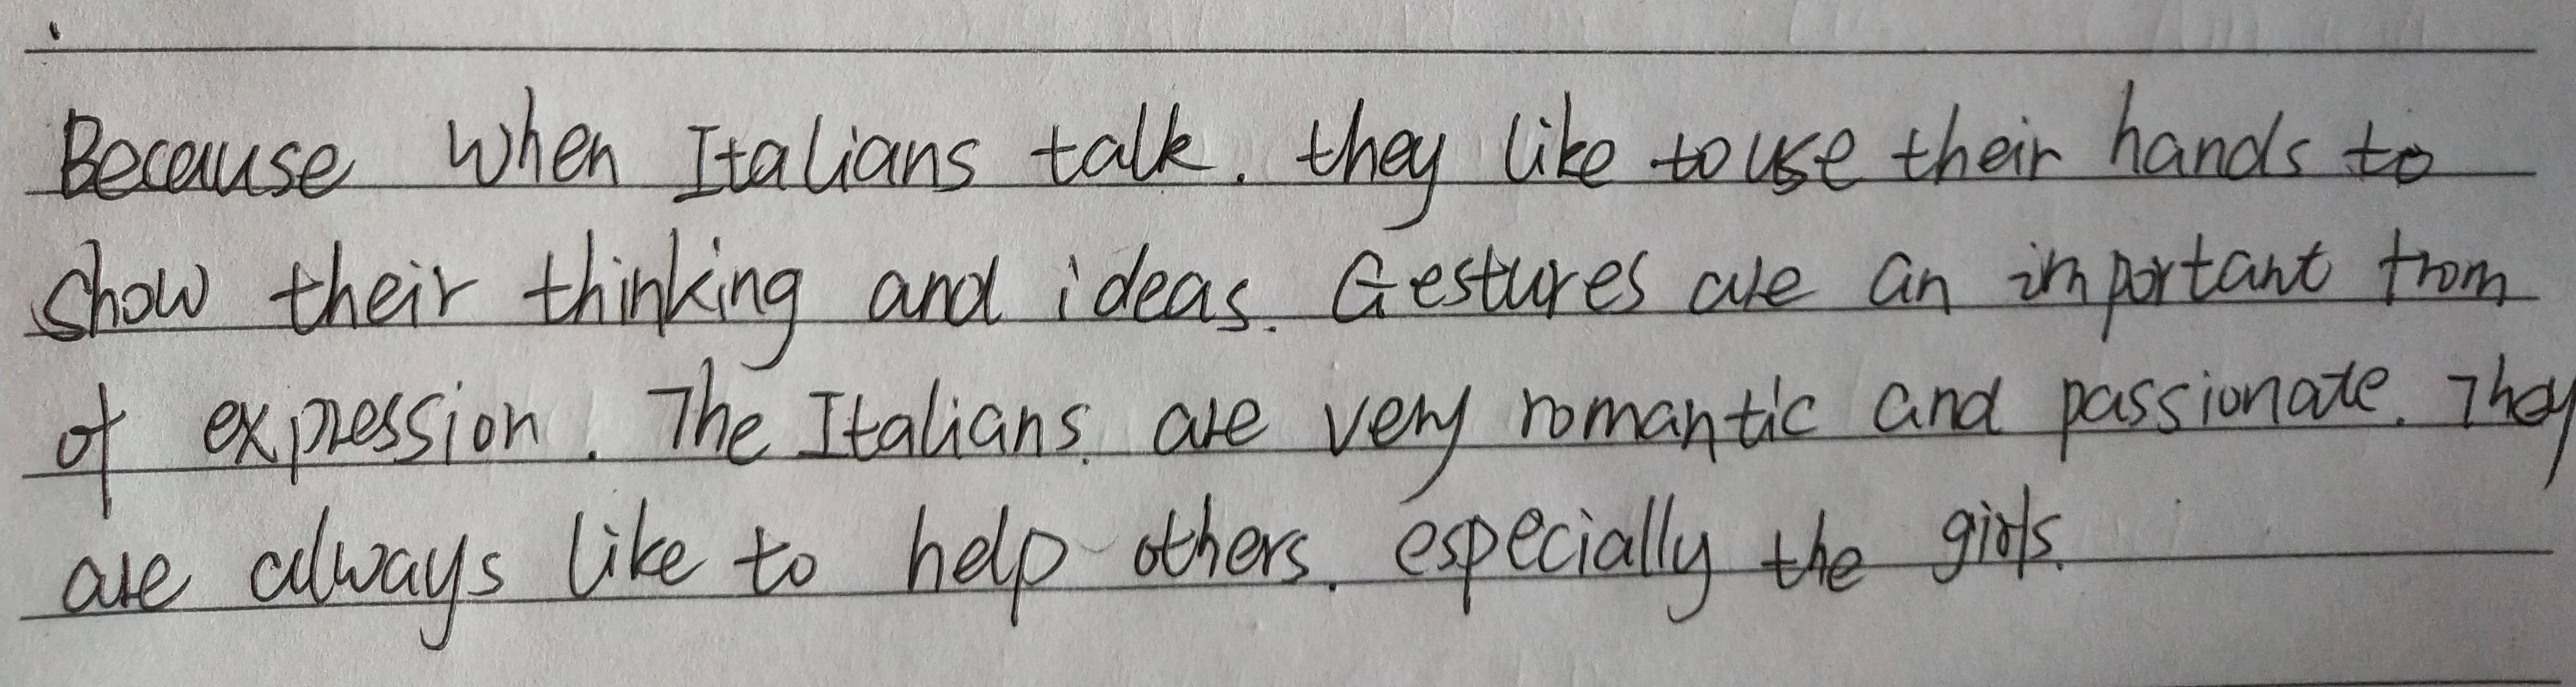 Because when Italians talk. they like to use their hands to
show their thinking and ideas. Gestures are an important from
of expression. The Italians. are very romantic and passionate. They
are always like to help others. especially the girls.